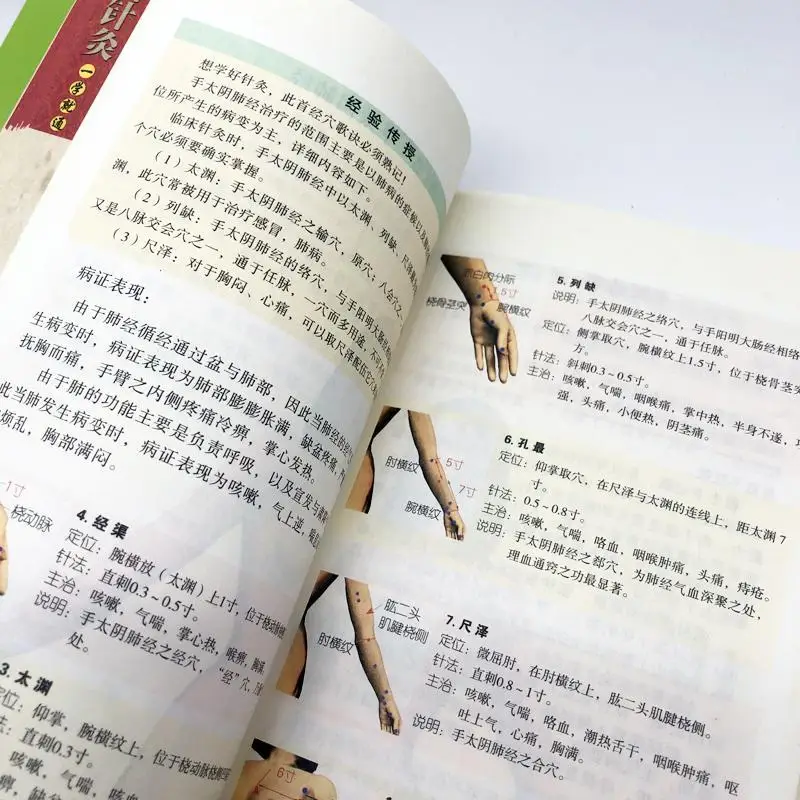 针灸
一学就通
经验传授
想学好针灸，此首经穴歌诀必须熟记！
手太阴肺经治疗的范围主要是以肺病的症候以及肺
位所产生的病变为主，详细内容如下。
临床针灸时，手太阴肺经中以太渊、列缺、尺泽
个穴必须要确实掌握。
（1）太渊：手太阴肺经之输穴，原穴，八会穴之
渊，此穴常被用于治疗感冒，肺病。
（2）列缺：手太阴肺经的络穴，与手阳明大肠
又是八脉交会穴之一，通于任脉，一穴而多用途，不
（3）尺泽：对于胸闷、心痛，可以取尺泽配
病证表现：
由于肺经循经通过盆与肺部，因此当肺经的经
生病变时，病证表现为肺部膨膨胀满，缺盆疼痛，
抚胸而痛，手臂之内侧疼痛冷痹，掌心发热。
由于肺的功能主要是负责呼吸，以及宣发与肃
此当肺发生病变时，病证表现为咳嗽，气上逆，
烦乱，胸部满闷。
1寸
桡动脉
4. 经渠
定位：腕横放（太渊）上1寸，位于桡动脉
针法：直刺0.3~0.5寸。
主治：咳嗽，气喘，掌心热，喉痹，胸
说明：手太阴肺经之经穴，“经”穴，
处。
3. 太渊
定位：仰掌，腕横纹上，位于桡动脉桡侧
针法：直刺0.3寸。
咳嗽，气喘，咳血，
痹，缺盆
赤白肉分际
1.5寸
桡骨茎突
腕横纹
5. 列缺
说明：手太阴肺经之络穴，与手阳明大肠经相络
八脉交会穴之一，通于任脉。
定位：侧掌取穴，腕横纹上1.5寸，位于桡骨茎突
针法：斜刺0.3~0.5寸。
主治：咳嗽，气喘，咽喉痛，掌中热，半身不遂，
强，头痛，小便热，阴茎痛。
肘横纹
5寸
7寸
腕横纹
6. 孔最
定位：仰掌取穴，在尺泽与太渊的连线上，距太渊7
寸。
针法：0.5~0.8寸。
主治：咳嗽，气喘，咯血，咽喉肿痛，头痛，痔疮。
说明：手太阴肺经之郄穴，为肺经气血深聚之处，
理血通窍之功最显著。
肱二头
肌腱桡侧
肘横纹
7. 尺泽
定位：微屈肘，在肘横纹上，肱二头肌腱桡侧。
针法：直刺0.8~1寸。
主治：咳嗽，气喘，咯血，潮热舌干，咽喉肿痛，呕
吐上气，心痛，胸满。
说明：手太阴肺经之合穴。
6寸